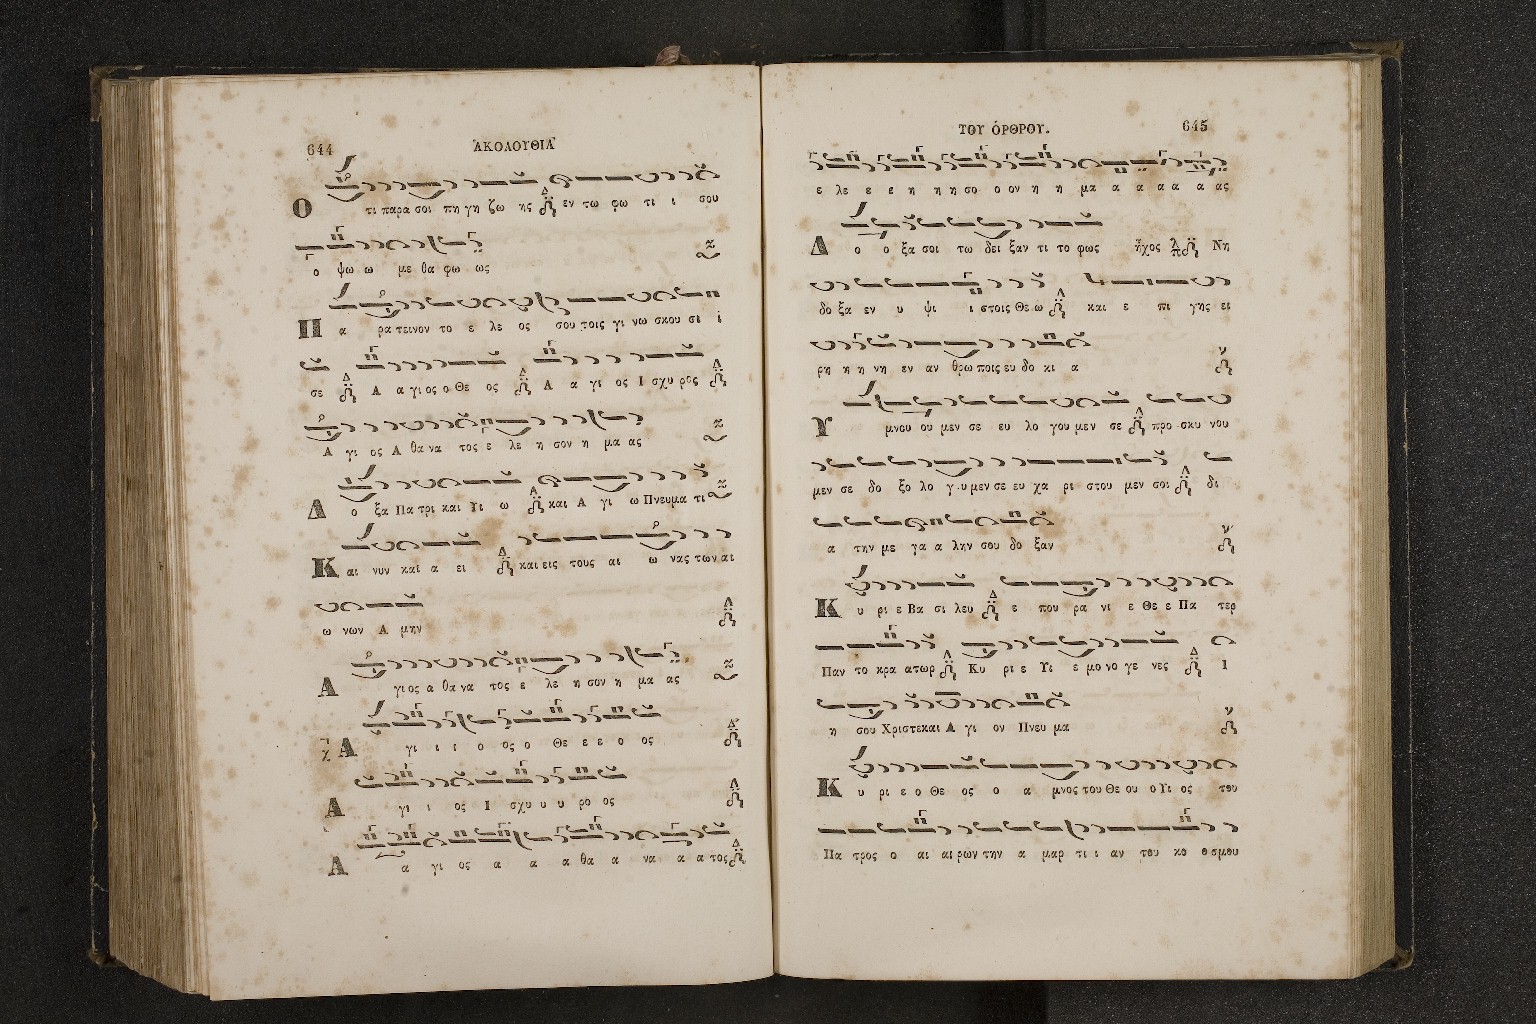 644 ἈΚΟΛΟΥΘΙΑ
Ο τι παρα σοι πη γη ζω ης εν τω φω τι ι σου
ο ψω ω με θα φω ως
Π α ρα τεινον το ε λε ος σου τοις γι νω σκου σι ι
σε Α α γι ος ο Θε ος Α α γι ος Ι σχυ ρος
Α γι ος Α θα να τος ε λε η σον η μα ας
Δ ο ξα Πα τρι και Υι ω και Α γι ω Πνευμα τι
Κ αι νυν και α ει και εις τους αι ω νας των αι
ω νων Α μην
Α γιος α θα να τος ε λε η σον η μα ας
Α γι ι ι ο ος ο Θε ε ε ο ος
Α γι ι ος Ι σχυ υ υ ρο ος
Α α γι ος α α α θα α να α α τος
ΤΟΥ ὈΡΘΡΟΥ. 645
ε λε ε ε η η η σο ο ον η η μα α α α α α ας
Δ ο ο ξα σοι τω δει ξαν τι το φως ἦχος Νη
δο ξα εν υ ψι ι στοις Θε ω και ε πι γης ει
ρη η η νη εν αν θρω ποις ευ δο κι α
Υ μνου ου μεν σε ευ λο γου μεν σε προ σκυ νου
μεν σε δο ξο λο γ υ μεν σε ευ χα ρι στου μεν σοι δι
α την με γα α λην σου δο ξαν
Κ υ ρι ε Βα σι λευ ε που ρα νι ε Θε ε Πα τερ
Παν το κρα ατωρ Κυ ρι ε Υι ε μο νο γε νες Ι
η σου Χριστε και Α γι ον Πνευ μα
Κ υ ρι ε ο Θε ος ο α μνος του Θε ου ο Υι ος του
Πα τρος ο αι αι ρων την α μαρ τι ι αν του κο ο σμου